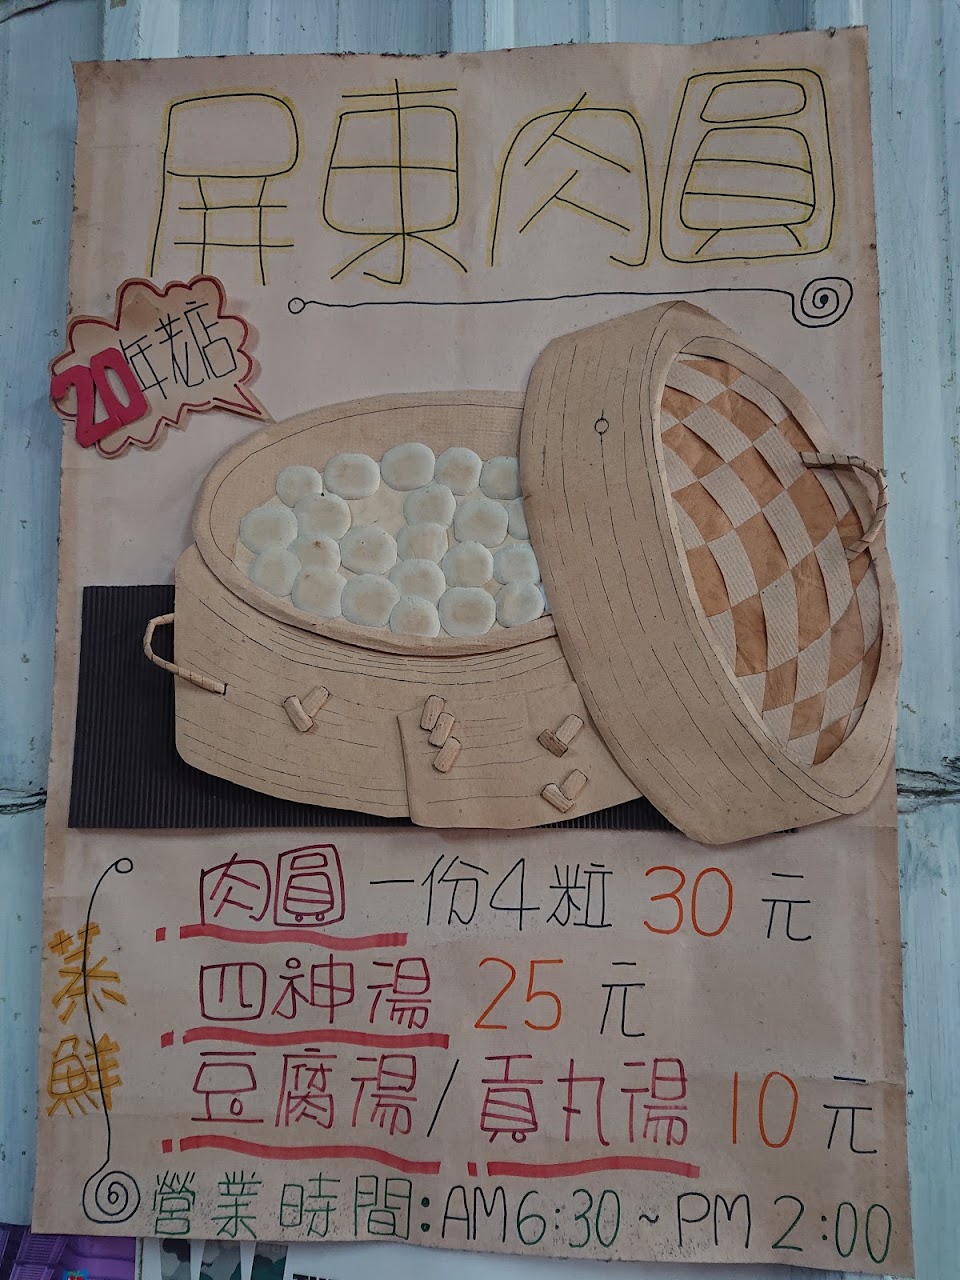 屏東肉圓
20年老店
肉圓一份4粒 30元
四神湯 25元
豆腐湯/貢丸湯 10元
蒸鮮
營業時間:AM6:30~PM2:00